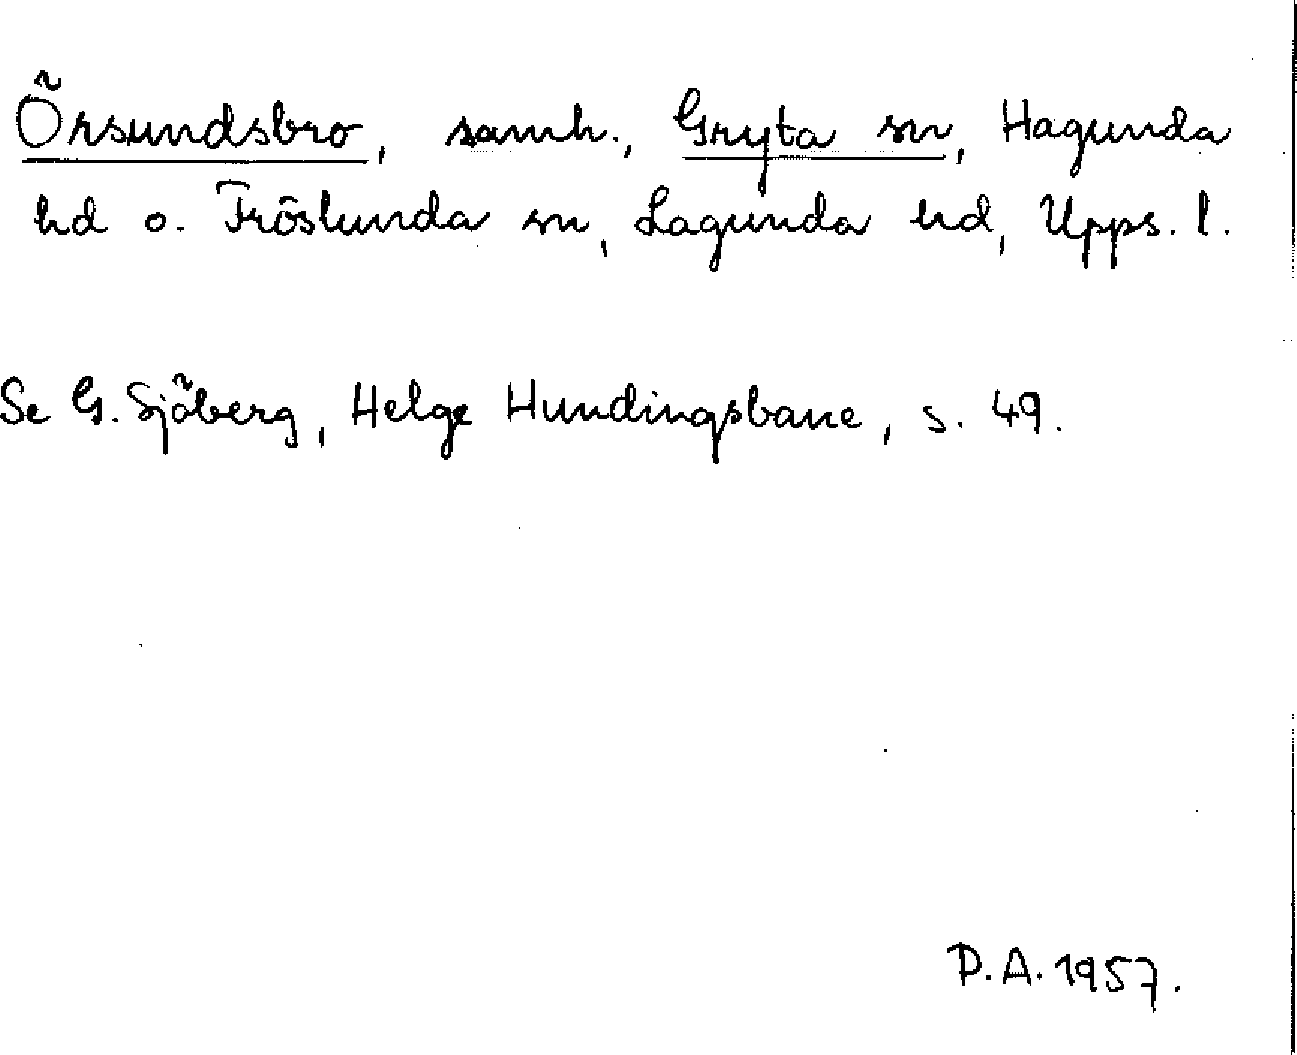 Örsundsbro, samh., Gryta sn, Hagunda
hd o. Fröslunda sn, Lagunda hd, Upps. l.
Se G. Sjöberg, Helge Hundingsbane, s. 49.
P.A. 1957.